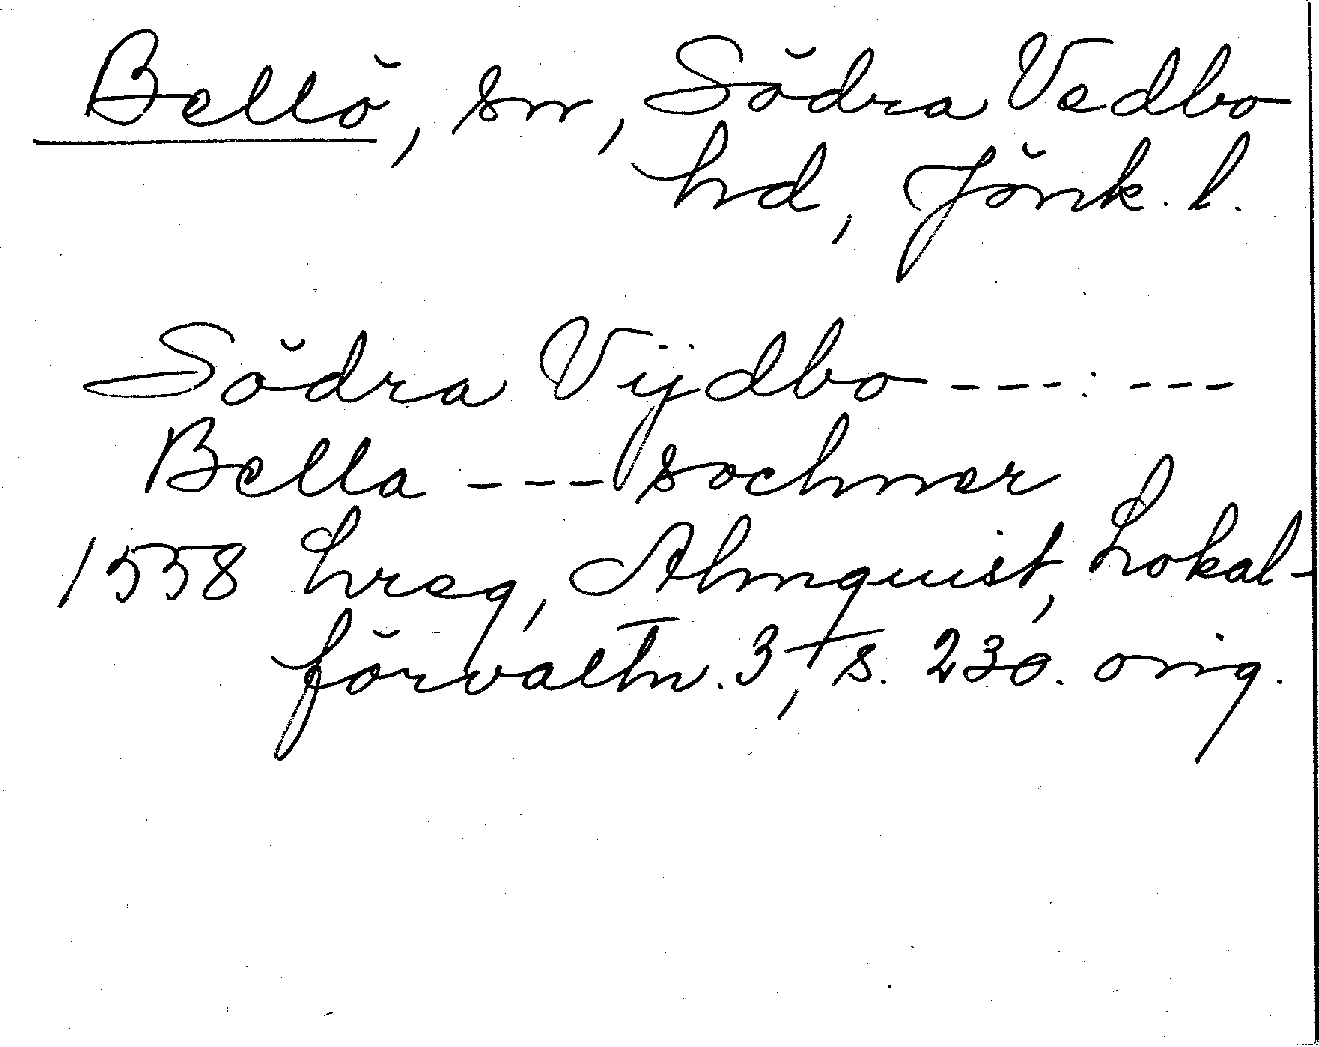 Bellö, sn, Södra Vedbo
hd, Jönk. l.
Södra Vijdbo --- : ---
Bella --- sochner
1558 hreg, Almquist, Lokal-
förvaltn. 3, s. 230. orig.